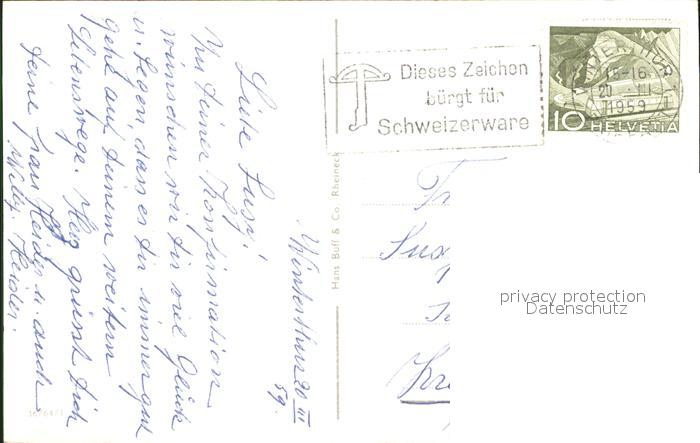 Winterthur 20 III
59.
Liebe Susy!
Zu Deiner Konfirmation
wünschen wir dir viel Glück
u. Segen, dass es dir immer gut
geht auf deinem weitern
Lebenswege. Herz grüsst dich
deine Frau Heidy u. auch
Willy Heider.
36764/1
Hans Buff & Co., Rheineck
Dieses Zeichen
bürgt für
Schweizerware
WINTERTHUR
15-16
20 III
1959
10 HELVETIA
privacy protection
Datenschutz